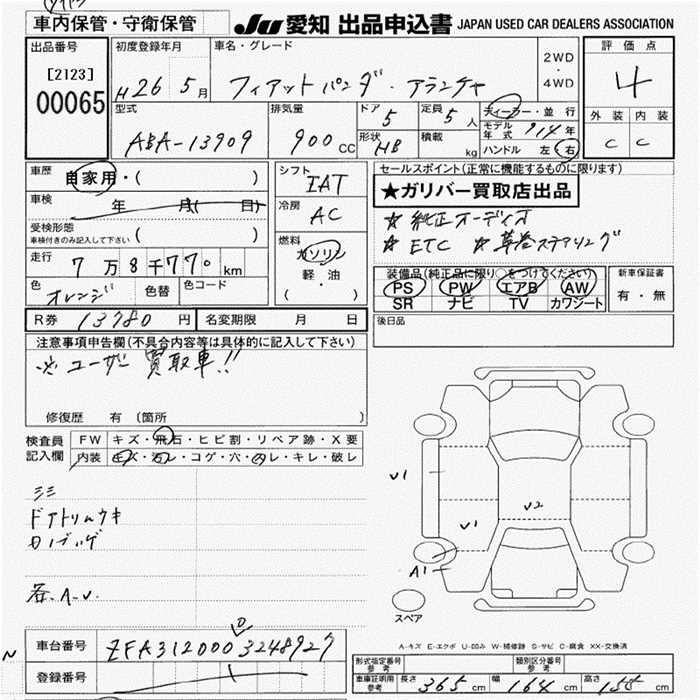 車内保管・守衛保管
Ju 愛知 出品申込書 JAPAN USED CAR DEALERS ASSOCIATION
出品番号 初度登録年月 車名・グレード 評価点
[2123]
00065
H 26 5月 フィアットパンダ・アランチャ
2WD
・
4WD
4
型式 排気量 ドア 定員 ディーラー・並行 外装 内装
ABA-13909 900 CC 5 5人
モデル年式 '14年
形状 HB 積載 kg ハンドル 左・右
C C
車歴 自家用・( )
シフト IAT
セールスポイント(正常に機能するものに限ります)
★ガリバー買取店出品
車検 年 月( 日)
冷房 AC
☆ 純正オーディオ
☆ ETC ☆ 革巻ステアリング
受検形態
車検付きのみ記入して下さい ( )
走行 7万8千770km
燃料 ガソリン
軽・油
( )
装備品(純正品に限り○をつけてください) 新車保証書
PS PW エアB AW
SR ナビ TV カワシート
有・無
色 オレンジ 色替 色コード
R券 13780円 名変期限 月 日
後日品
注意事項申告欄(不具合内容等は具体的に記入して下さい)
※ユーザー買取車!!
修復歴 有 (箇所 )
検査員記入欄
FW キズ・飛石・ヒビ割・リペア跡・X要
内装 キズ・汚レ・コゲ・穴・スレ・キレ・破レ
ミミ
ドアトリムウキ
U1
U2
U1
A1
各A.U.
スペア
A-キズ E-エクボ U-凹み W-補修跡 S-サビ C-腐食 XX-交換済
車台番号 ZFA3120003248927
登録番号
形式指定番号
参考
類別区分番号
参考
車庫証明用
参考
長さ 365 cm 幅 164 cm 高さ 155 cm